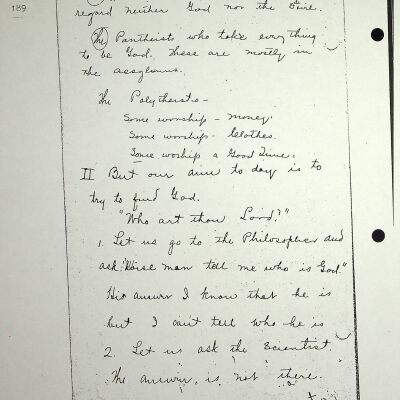 189
regard neither God nor the Devil.
The Pantheists who take everything
to be God. These are mostly in
the assylums.
The Polytheists -
Some worship - money.
Some worship - Clothes.
Some woship a Good Time.
II But our aim to day is to
try to find God.
"Who art thou Lord?"
1. Let us go to the Philosopher and
ask "Wise man tell me who is God."
His answer I know that he is
but I can't tell who he is
2. Let us ask the Scientist.
The answer is not there.